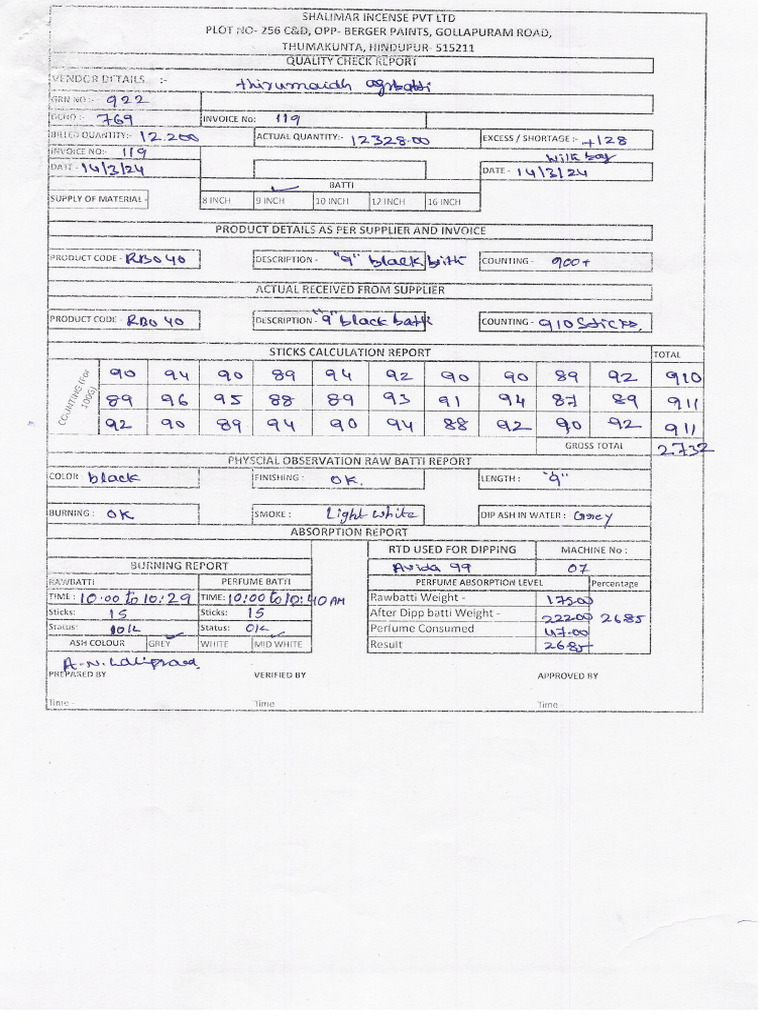 SHALIMAR INCENSE PVT LTD
PLOT NO- 256 C&D, OPP- BERGER PAINTS, GOLLAPURAM ROAD,
THUMAKUNTA, HINDUPUR- 515211
QUALITY CHECK REPORT
VENDOR DETAILS :- thirumaidh agrbatti
GRN NO :- 922
DCNO :- 769 INVOICE No: 119
BILLED QUANTITY:- 12.200 ACTUAL QUANTITY:- 12328.00 EXCESS / SHORTAGE :- +128
INVOICE NO:- 119 with bag
DATE - 14/3/24 DATE - 14/3/24
BATTI
SUPPLY OF MATERIAL - 8 INCH 9 INCH 10 INCH 12 INCH 16 INCH
PRODUCT DETAILS AS PER SUPPLIER AND INVOICE
PRODUCT CODE - RB040 DESCRIPTION - "9" black batti COUNTING - 900+
ACTUAL RECEIVED FROM SUPPLIER
PRODUCT CODE - RB040 DESCRIPTION - "9" black batti COUNTING - 910 Sticks.
STICKS CALCULATION REPORT TOTAL
COUNTING (For 100G) 90 94 90 89 94 92 90 90 89 92 910
89 96 95 88 89 93 91 94 87 89 911
92 90 89 94 90 94 88 92 90 92 911
GROSS TOTAL 2.732
PHYSCIAL OBSERVATION RAW BATTI REPORT
COLOR black FINISHING : OK. LENGTH : "9"
BURNING : OK SMOKE : Light white DIP ASH IN WATER : Grey
ABSORPTION REPORT
RTD USED FOR DIPPING MACHINE No :
BURNING REPORT Avida 99 07
RAWBATTI PERFUME BATTI PERFUME ABSORPTION LEVEL Percentage
TIME : 10:00 to 10:29 TIME: 10:00 to 10:40 AM Rawbatti Weight - 175.00
Sticks: 15 Sticks: 15 After Dipp batti Weight - 222.00 26.85
Status: OK Status: OK Perfume Consumed 47.00
ASH COLOUR GREY WHITE MID WHITE Result 26.85
A.N. Laliprasad
PREPARED BY VERIFIED BY APPROVED BY
Time - Time Time